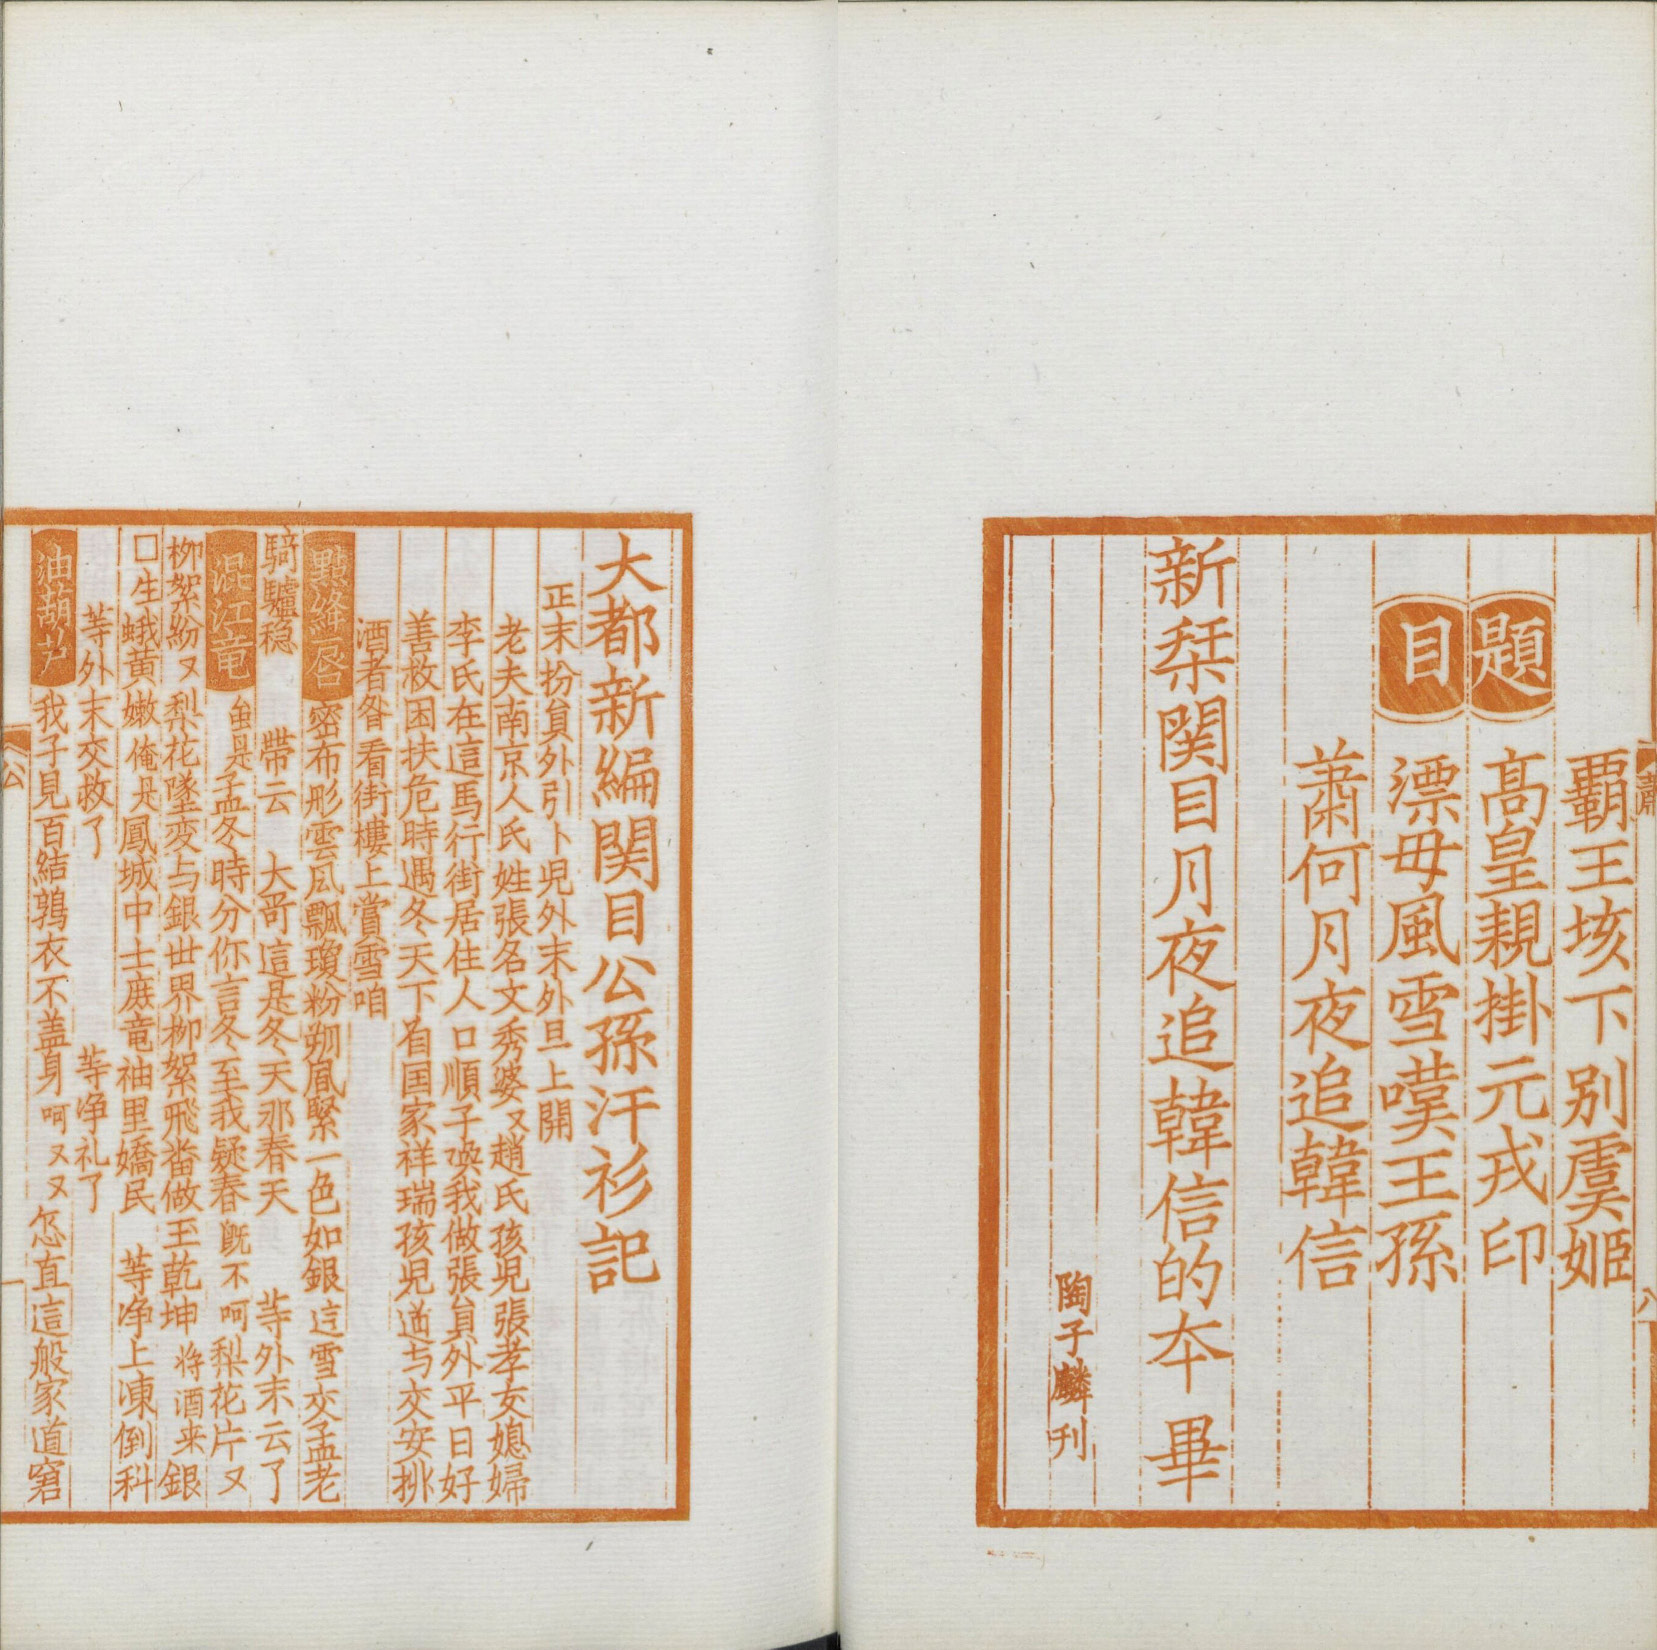 霸王垓下别虞姬
題 高皇親掛元戎印
目 漂母風雪嘆王孫
蕭何月夜追韓信
新栞関目月夜追韓信的夲 畢
陶子麟刊
蕭
八
大都新編関目公孫汗衫記
正末扮貟外引卜児外末外旦上開
老夫南京人氏姓張名文秀婆又趙氏孩児張孝友媳婦
李氏在這馬行街居住人口順子喚我做張貟外平日好
善救困扶危時遇冬天下着国家祥瑞孩児道与交安排
酒者昝看街樓上賞雪咱
點絳唇 密布彤雲風飄瓊粉朔風緊一色如銀 這雪交孟老
騎驢稳 帶云 大哥這是冬天那春天 等外末云了
混江竜 虽是孟冬時分你言冬至我疑春 既不呵 梨花片又
柳絮紛又梨花墜変与銀世界柳絮飛畨做玉乾坤 将酒来 銀
□生蛾黄嫩 俺是 鳳城中士庶竜袖里嬌民 等净上凍倒科
等外末交救了 等净礼了
油葫芦 我子見百結鶉衣不盖身 呵又又 怎直這般家道窘
公
一